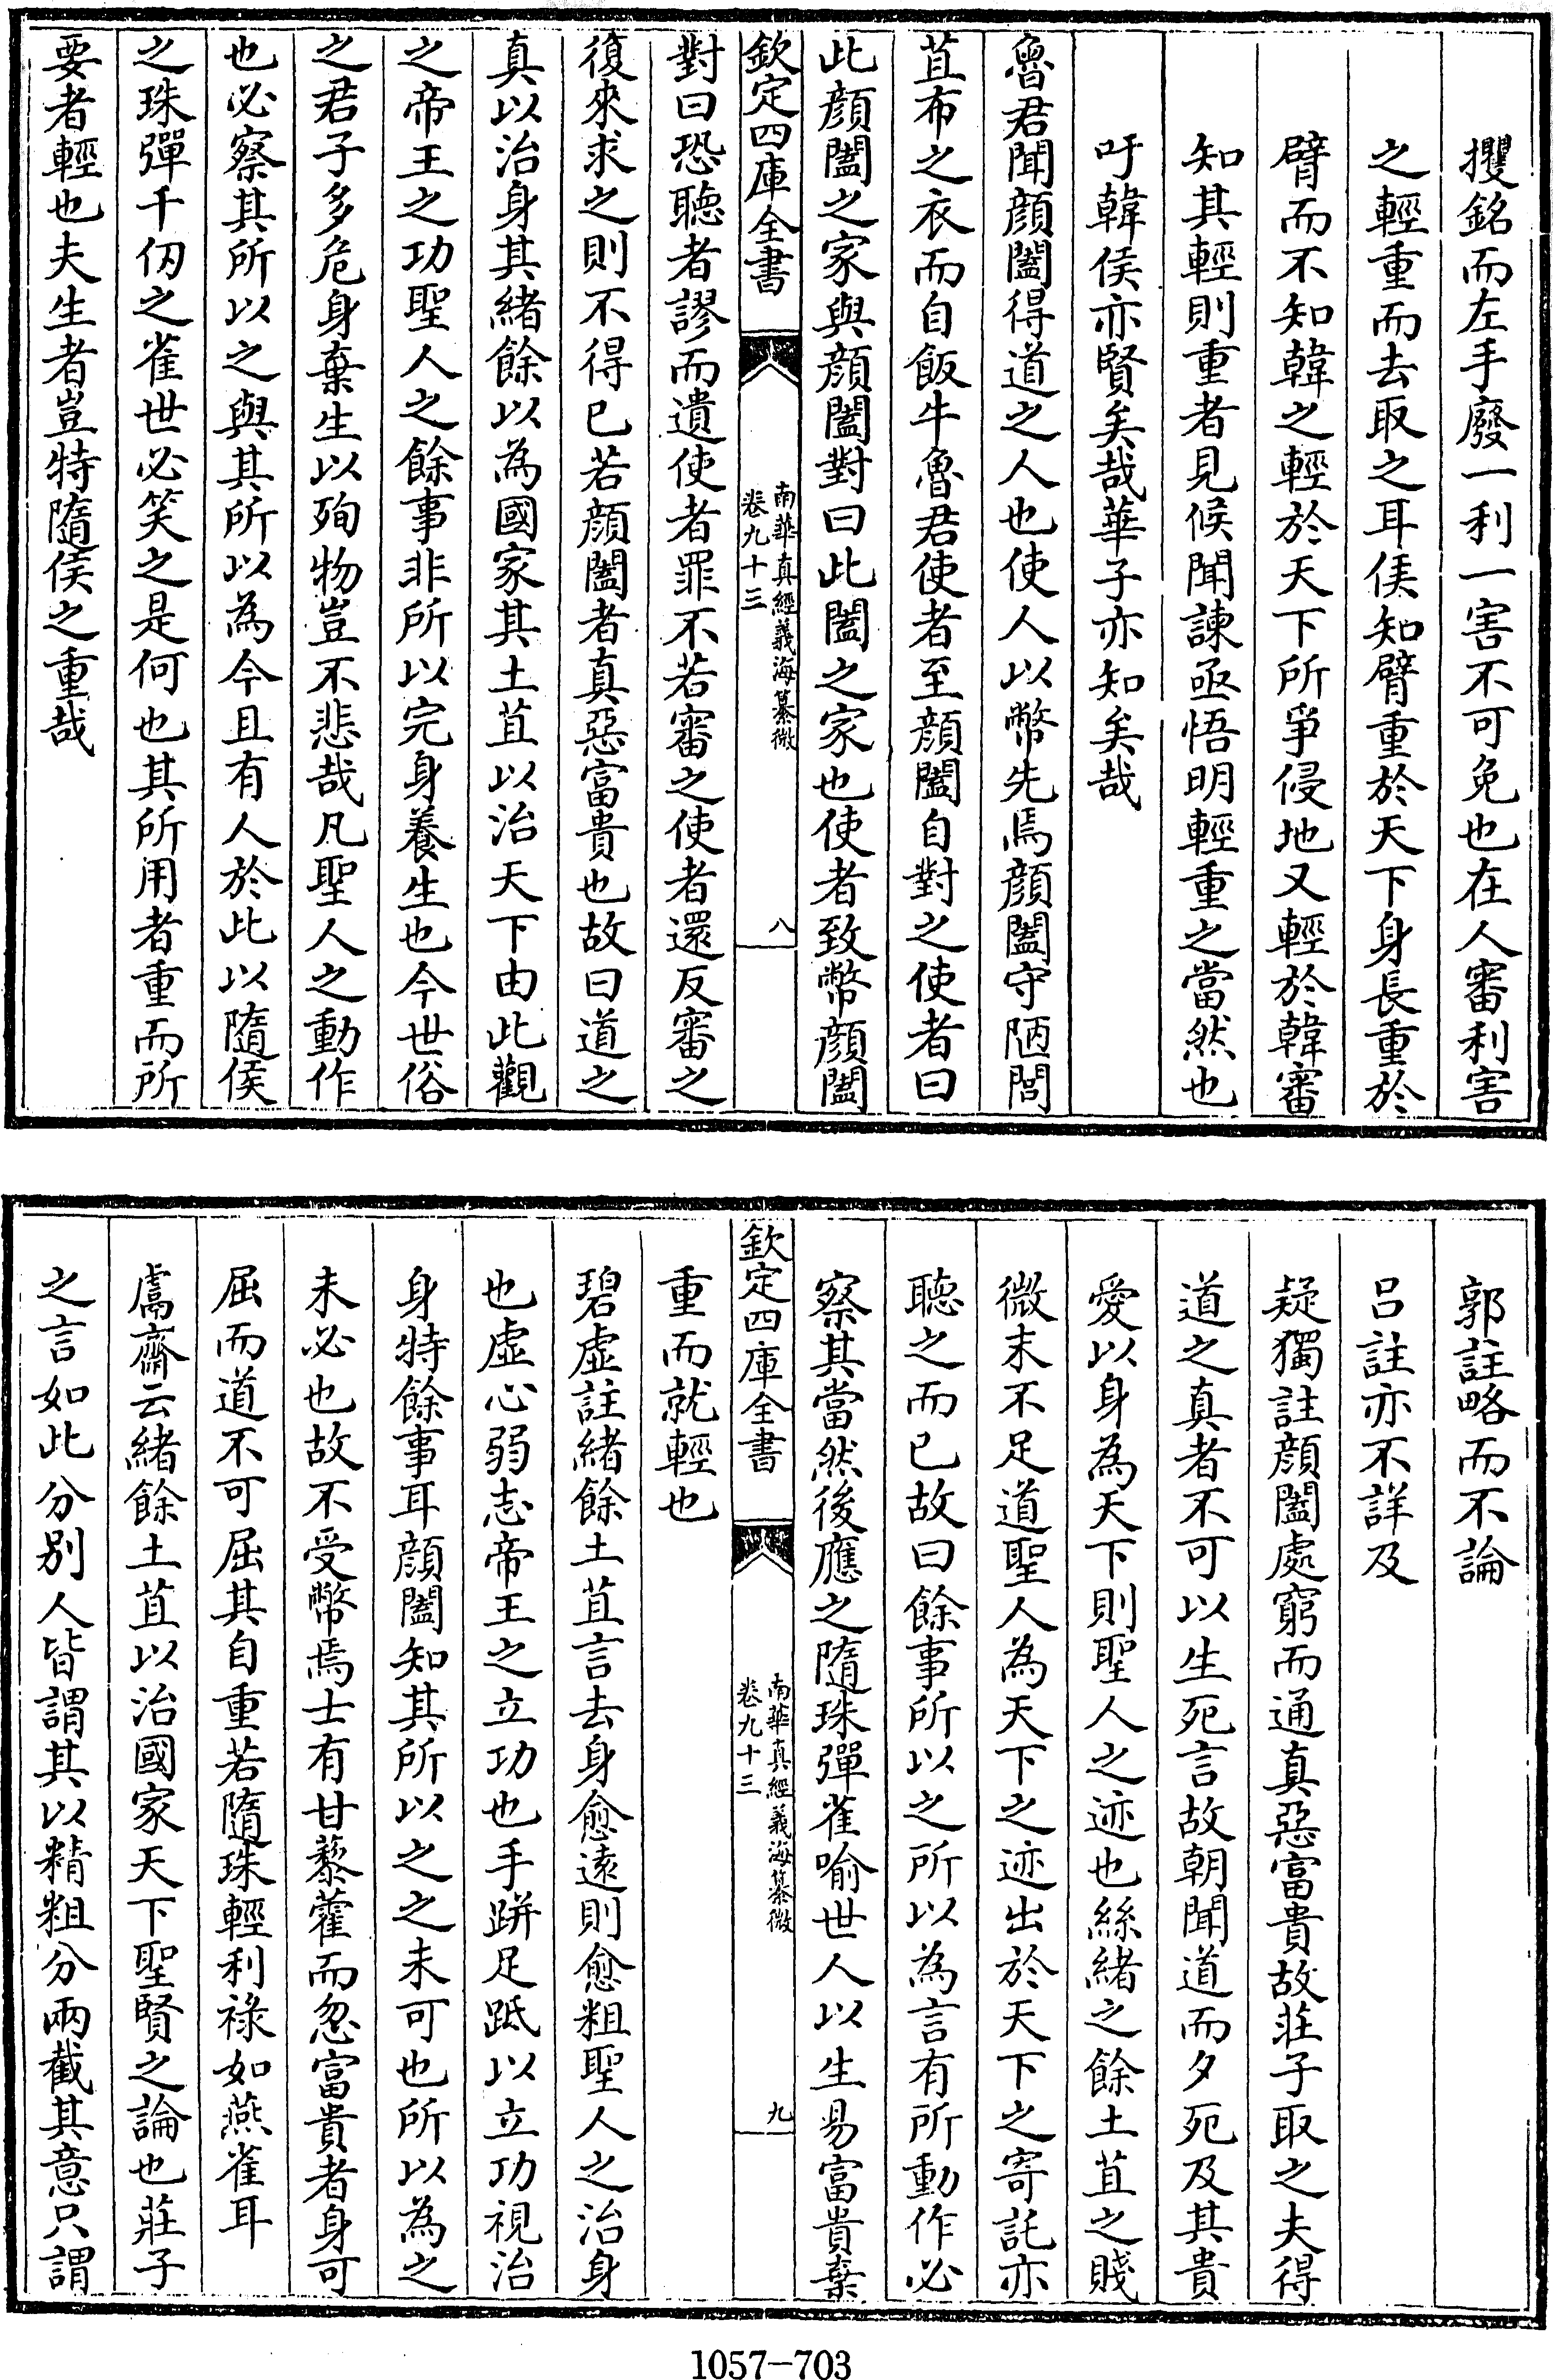 攫銘而左手廢一利一害不可免也在人審利害
之輕重而去取之耳侯知臂重於天下身長重於
臂而不知韓之輕於天下所爭侵地又輕於韓審
知其輕則重者見候聞諫亟悟明輕重之當然也
吁韓侯亦賢矣哉華子亦知矣哉
魯君聞顔闔得道之人也使人以幣先焉顔闔守陋閭
苴布之衣而自飯牛魯君使者至顔闔自對之使者曰
此顔闔之家與顔闔對曰此闔之家也使者致幣顔闔
欽定四庫全書
南華真經義海纂微
卷九十三
八
對曰恐聽者謬而遺使者罪不若審之使者還反審之
復來求之則不得已若顔闔者真惡富貴也故曰道之
真以治身其緒餘以為國家其土苴以治天下由此觀
之帝王之功聖人之餘事非所以完身養生也今世俗
之君子多危身棄生以殉物豈不悲哉凡聖人之動作
也必察其所以之與其所以為今且有人於此以隨侯
之珠彈千仞之雀世必笑之是何也其所用者重而所
要者輕也夫生者豈特隨侯之重哉
郭註略而不論
呂註亦不詳及
疑獨註顔闔處窮而通真惡富貴故莊子取之夫得
道之真者不可以生死言故朝聞道而夕死及其貴
愛以身為天下則聖人之迹也絲緒之餘土苴之賤
微末不足道聖人為天下之迹出於天下之寄託亦
聽之而已故曰餘事所以之所以為言有所動作必
察其當然後應之隨珠彈雀喻世人以生易富貴棄
欽定四庫全書
南華真經義海纂微
卷九十三
九
重而就輕也
碧虛註緒餘土苴言去身愈遠則愈粗聖人之治身
也虛心弱志帝王之立功也手跰足胝以立功視治
身特餘事耳顔闔知其所以之之未可也所以為之
未必也故不受幣焉士有甘藜藿而忽富貴者身可
屈而道不可屈其自重若隨珠輕利祿如燕雀耳
鬳齋云緒餘土苴以治國家天下聖賢之論也莊子
之言如此分別人皆謂其以精粗分兩截其意只謂
1057-703